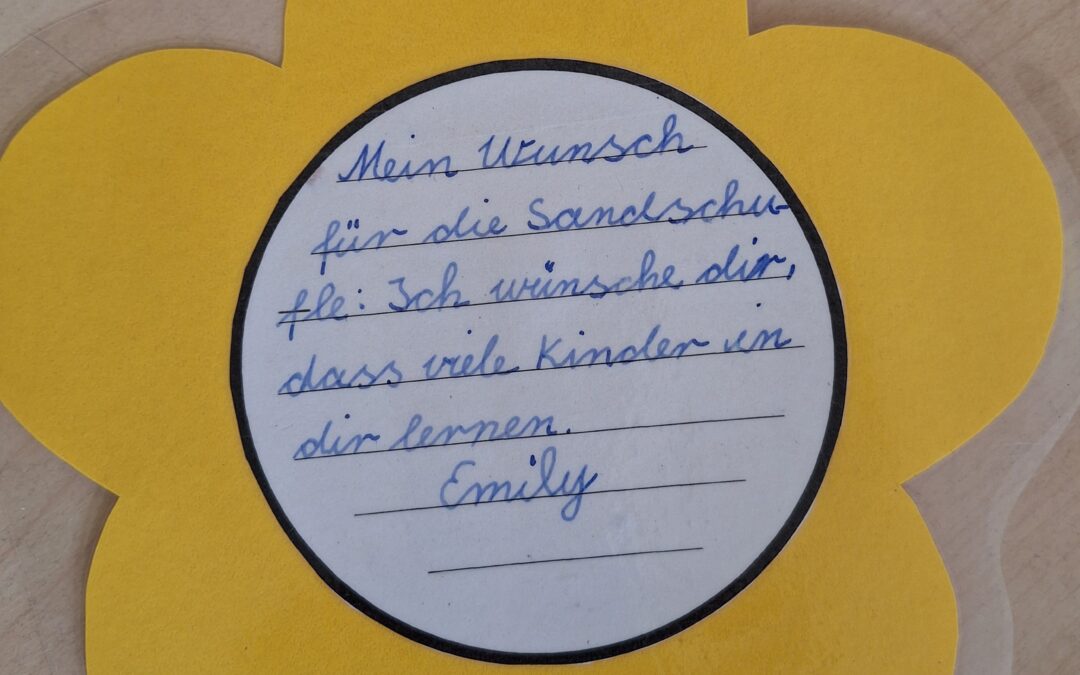 Mein Wunsch
für die Sandschu-
fle: Ich wünsche dir,
dass viele Kinder in
dir lernen.
Emily